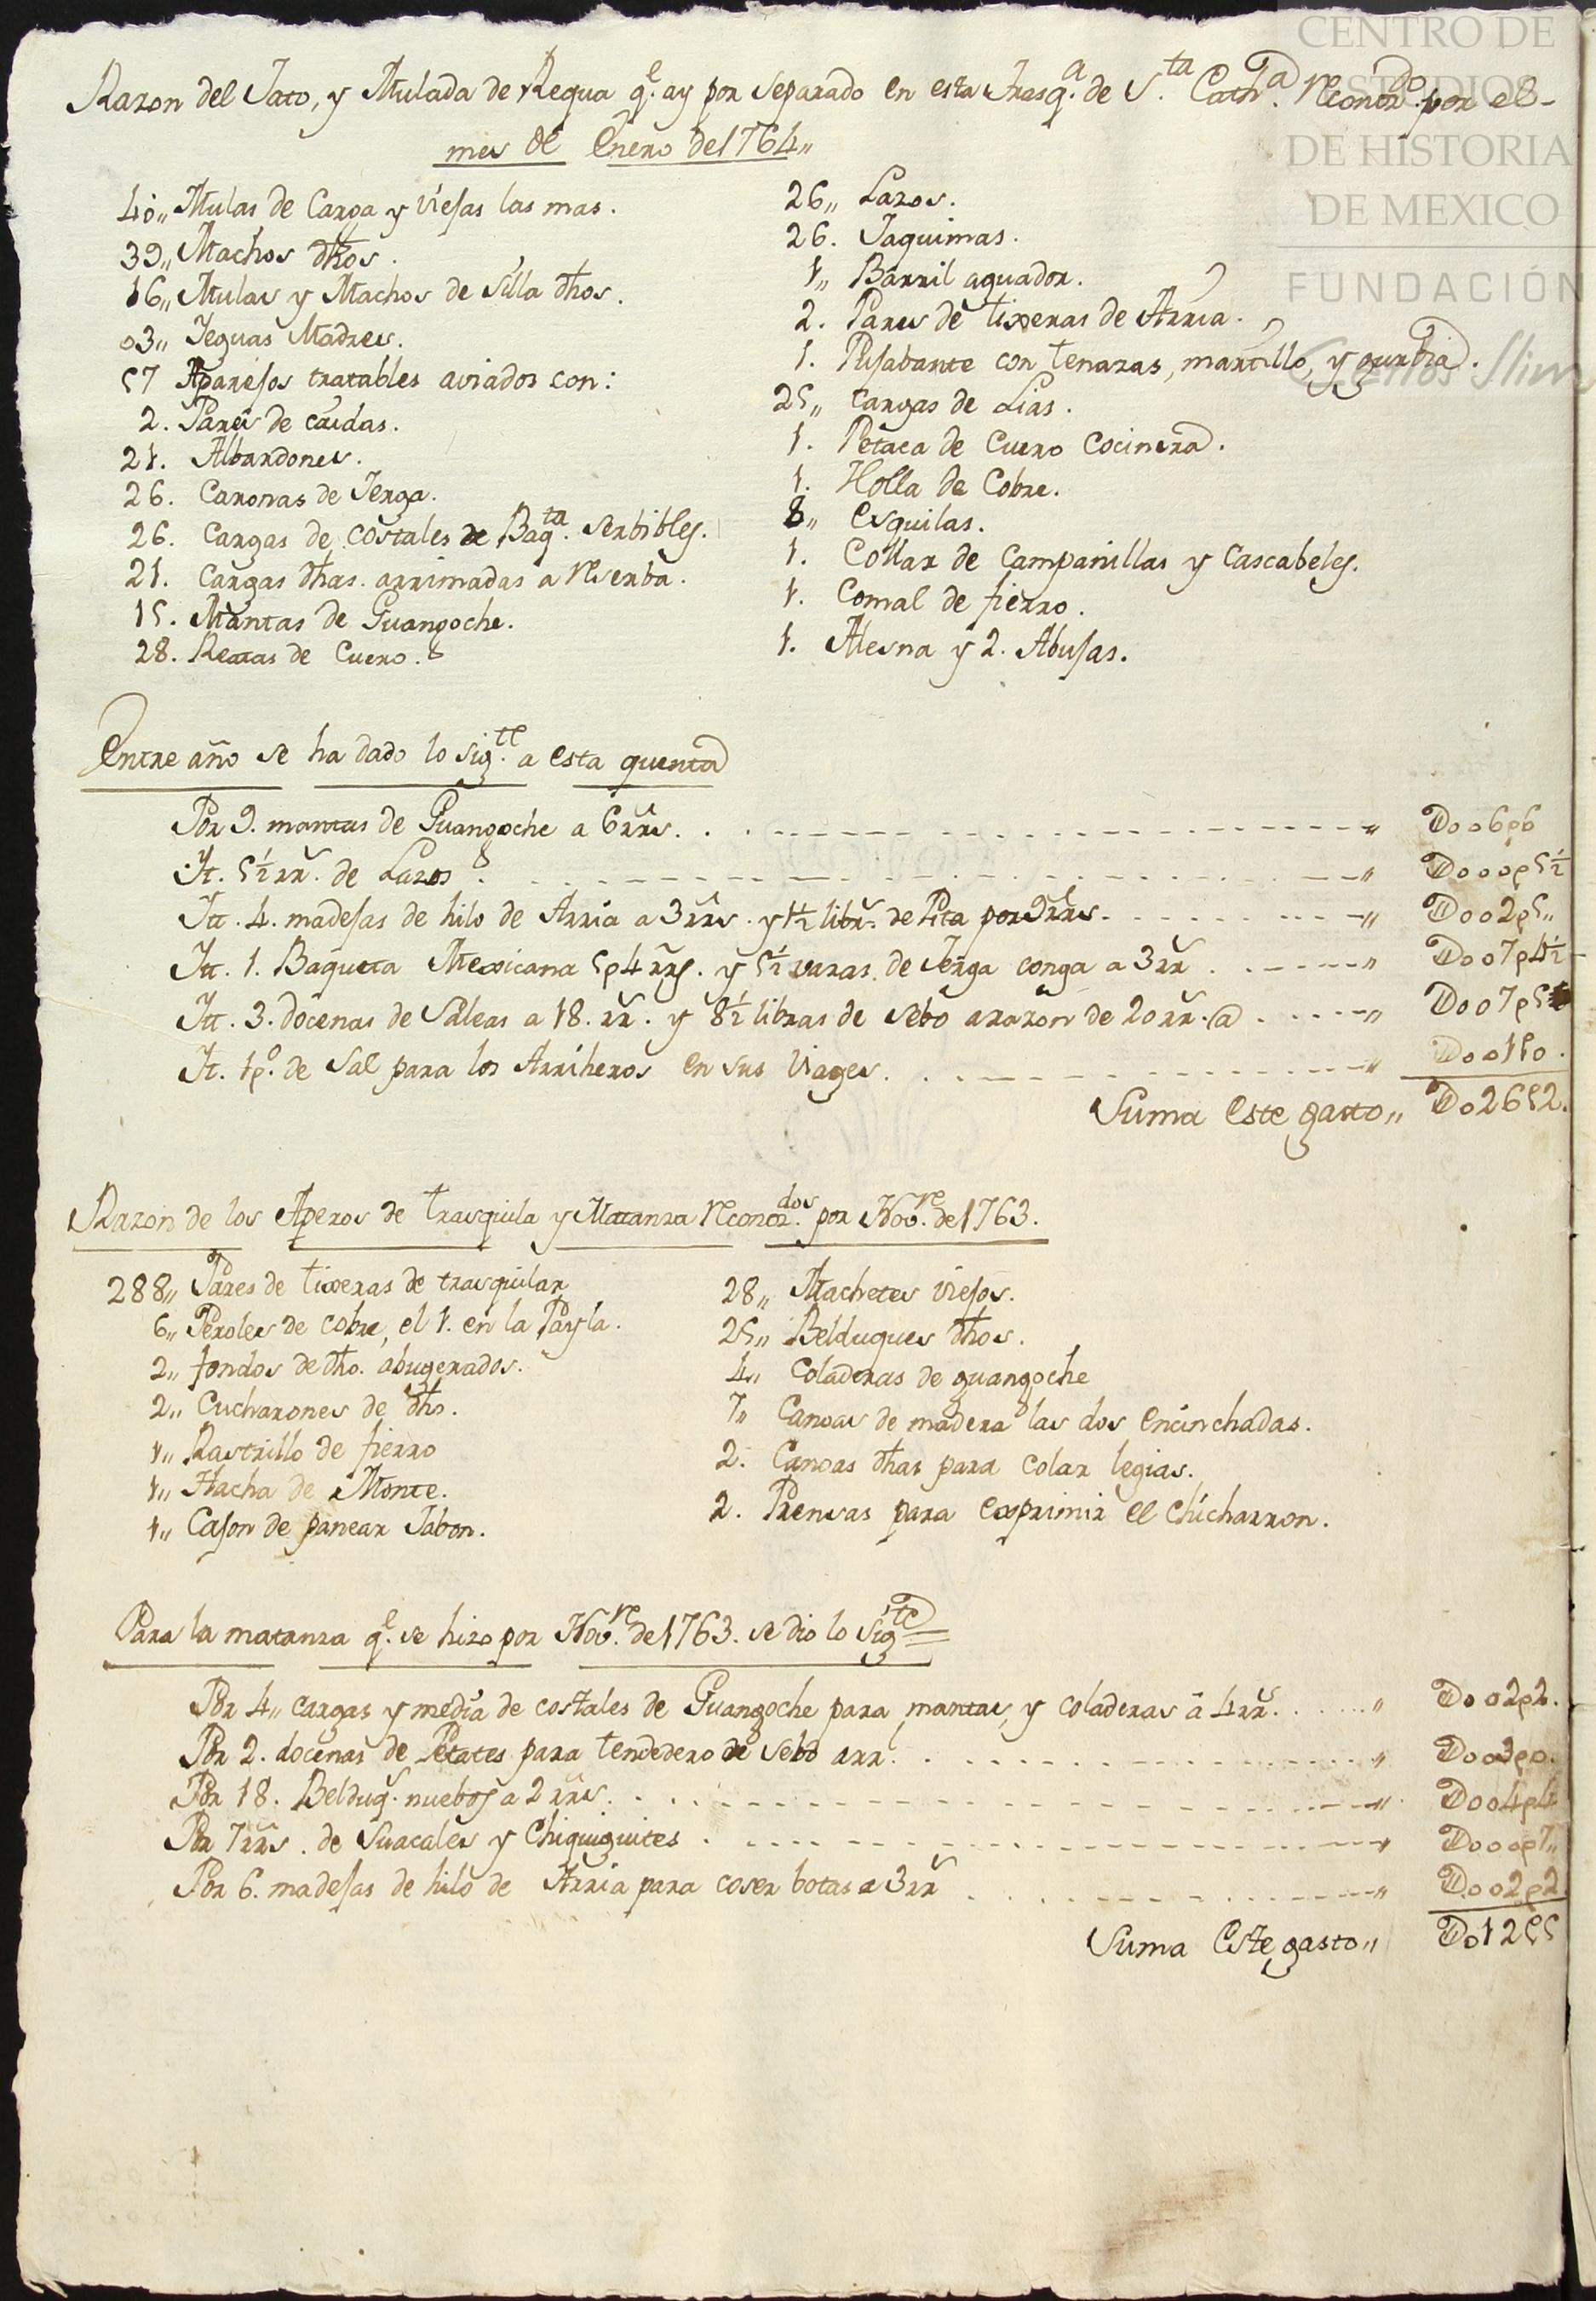 CENTRO DE
ESTUDIOS
DE HISTORIA
DE MEXICO
FUNDACIÓN
Carlos Slim
Razon del Jato, y Mulada de Requa q.e ay por separado en esta Trasq.a de S.ta Cath.a Reconda por el
mes de Enero de 1764,,
40,, Mulas de Carga y viejas las mas.
39,, Machos dhos.
16,, Mulas y Machos de silla dhos.
03,, Jeguas Madres.
57 Aparejos tratables aviados con:
2. Pares de caidas.
21. Albardones.
26. Caronas de Jerga.
26. Cargas de costales de Baq.ta serbibles.
21. Cargas dhas. arrimadas a reserba.
15. Mantas de Guangoche.
28. Reatas de Cuero.
26,, Lazos.
26. Jaquimas.
1,, Barril aguador.
2. Pares de tixeras de Arria.
1. Pujabante con tenazas, martillo, y gurbia.
25,, cargas de Lias.
1. Petaca de Cuero Cocinera.
1. Holla de Cobre.
8,, Esquilas.
1. Collar de Campanillas y Cascabeles.
1. Comal de fierro.
1. Alesna y 2. Abujas.
Entre año se ha dado lo sig.te a esta quenta
Por 9. mantas de Guangoche a 6 rrs. ,, D006p6
It. 5½ rr. de Lazos ,, D000p5½
Itt. 4. madejas de hilo de Arria a 3 rrs. y 1½ libr.s de Pita por 9 rrs. ,, D002p5,,
Itt. 1. Baqueta Mexicana 5p4 rrs. y 5½ varas de Jerga conga a 3 rr ,, D007p4½
Itt. 3. docenas de Saleas a 18. rr. y 8½ libras de sebo arazon de 20 rr. @ ,, D007p5
It. 1p.o de Sal para los Arriheros en sus Viages. ,, D001p0.
Suma este gasto,, D026p2.
Razon de los Aperos de trasquila y Matanza Reconoz.dos por Nov.re de 1763.
288,, Pares de tixeras de trasquilar
6,, Peroles de cobre, el 1. en la Payla.
2,, fondos de dho. abugerados.
2,, Cucharones de dho.
1,, Rastrillo de fierro
1,, Hacha de Monte.
1,, Cajon de panear Jabon.
28,, Machetes viejos.
25,, Belduques dhos.
4,, coladeras de guangoche
7,, Canoas de madera las dos encinchadas.
2. Canoas dhas para colar legias.
2. Prensas para exprimir el chicharron.
Para la matanza q.e se hizo por Nov.re de 1763. se dio lo Sig.te
Por 4,, cargas y media de costales de Guangoche para mantas, y coladeras a 4 rr. ,, D002p2.
Por 2. docenas de Petates para tendedero de sebo a rr. ,, D003p0.
Por 18. Belduq.s nuebos a 2 rrs. ,, D004p4
Por 7 rrs. de Guacales y Chiquiguites ,, D000p7,,
Por 6. madejas de hilo de Arria para coser botas a 3 rr ,, D002p2
Suma Este gasto,, D012p5